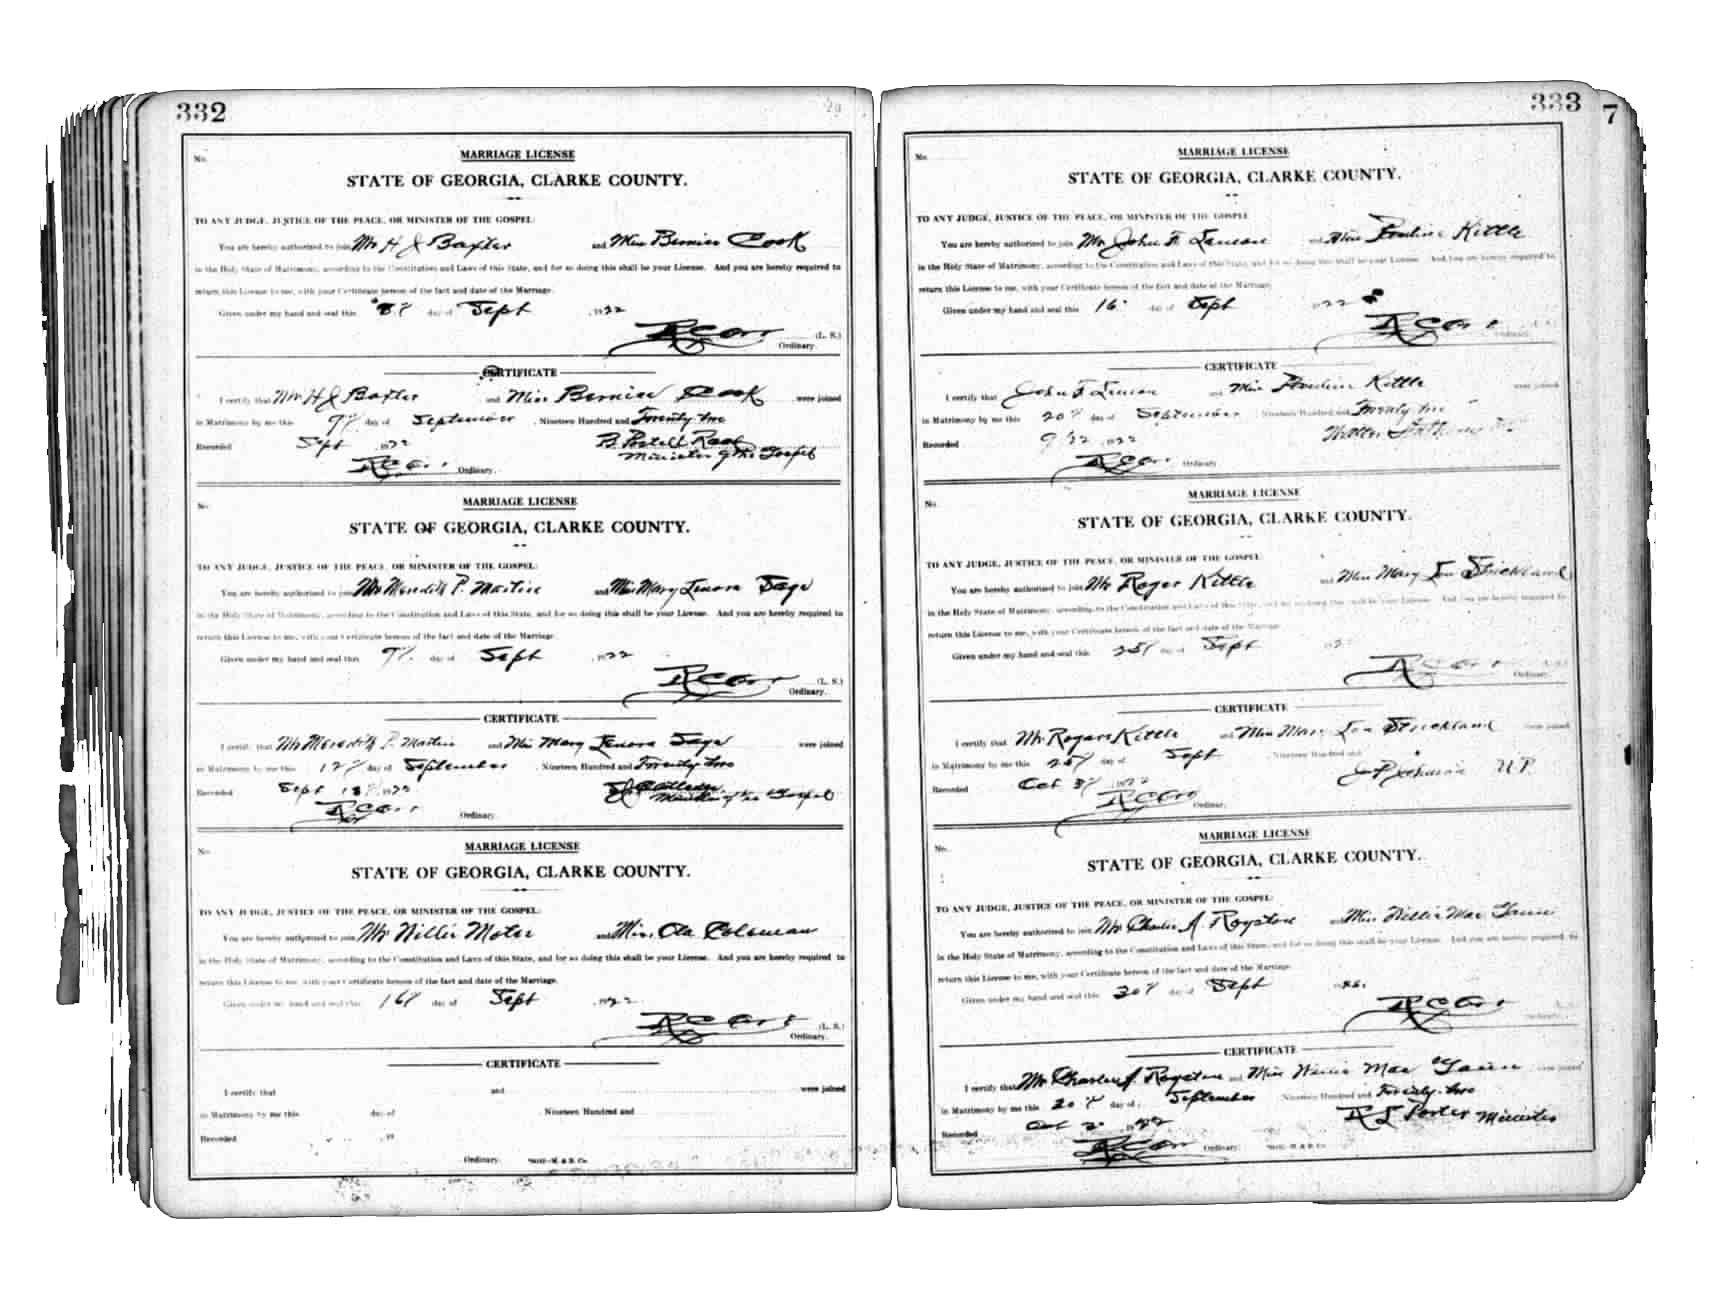 332
No.
MARRIAGE LICENSE
STATE OF GEORGIA, CLARKE COUNTY.
TO ANY JUDGE, JUSTICE OF THE PEACE, OR MINISTER OF THE GOSPEL:
You are hereby authorized to join Mr H J Baxter and Miss Bernice Cook
in the Holy State of Matrimony, according to the Constitution and Laws of this State, and for so doing this shall be your License. And you are hereby required to
return this License to me, with your Certificate hereon of the fact and date of the Marriage.
Given under my hand and seal this 8th day of Sept 1922
R C Orr (L. S.)
Ordinary.
CERTIFICATE
I certify that Mr H J Baxter and Miss Bernice Cook were joined
in Matrimony by me this 9th day of September, Nineteen Hundred and Twenty two
Recorded Sept 1922 B. Postell Read
Minister of the Gospel
R C Orr Ordinary.
No.
MARRIAGE LICENSE
STATE OF GEORGIA, CLARKE COUNTY.
TO ANY JUDGE, JUSTICE OF THE PEACE, OR MINISTER OF THE GOSPEL:
You are hereby authorized to join Mr Meredith P. Martin and Miss Mary Lenora Sage
in the Holy State of Matrimony, according to the Constitution and Laws of this State, and for so doing this shall be your License. And you are hereby required to
return this License to me, with your Certificate hereon of the fact and date of the Marriage.
Given under my hand and seal this 9th day of Sept 1922
R C Orr (L. S.)
Ordinary.
CERTIFICATE
I certify that Mr Meredith P. Martin and Miss Mary Lenora Sage were joined
in Matrimony by me this 12th day of September, Nineteen Hundred and Twenty two
Recorded Sept 13th 1922
Minister of the Gospel
R C Orr Ordinary.
No.
MARRIAGE LICENSE
STATE OF GEORGIA, CLARKE COUNTY.
TO ANY JUDGE, JUSTICE OF THE PEACE, OR MINISTER OF THE GOSPEL:
You are hereby authorized to join Mr Willie Moter and Miss. Ola Coleman
in the Holy State of Matrimony, according to the Constitution and Laws of this State, and for so doing this shall be your License. And you are hereby required to
return this License to me, with your Certificate hereon of the fact and date of the Marriage.
Given under my hand and seal this 16th day of Sept 1922
R C Orr (L. S.)
Ordinary.
CERTIFICATE
I certify that and were joined
in Matrimony by me this day of Nineteen Hundred and
Recorded , 19
Ordinary.
333
7
No.
MARRIAGE LICENSE
STATE OF GEORGIA, CLARKE COUNTY.
TO ANY JUDGE, JUSTICE OF THE PEACE, OR MINISTER OF THE GOSPEL
You are hereby authorized to join Mr John F. Lenean and Miss Pauline Kittle
in the Holy State of Matrimony, according to the Constitution and Laws of this State, and for so doing this shall be your License. And you are hereby required to
return this License to me, with your Certificate hereon of the fact and date of the Marriage.
Given under my hand and seal this 16 day of Sept 1922
R C Orr
Ordinary.
CERTIFICATE
I certify that John F Lenean and Miss Pauline Kittle were joined
in Matrimony by me this 20th day of September, Nineteen Hundred and Twenty two
Recorded 9/22 1922 Walter
R C Orr Ordinary
No.
MARRIAGE LICENSE
STATE OF GEORGIA, CLARKE COUNTY.
TO ANY JUDGE, JUSTICE OF THE PEACE, OR MINISTER OF THE GOSPEL:
You are hereby authorized to join Mr Roger Kittle and Miss Mary Lou Strickland
in the Holy State of Matrimony, according to the Constitution and Laws of this State, and for so doing this shall be your License. And you are hereby required to
return this License to me, with your Certificate hereon of the fact and date of the Marriage.
Given under my hand and seal this 25th day of Sept 1922
R C Orr
Ordinary.
CERTIFICATE
I certify that Mr. Rogers Kittle and Miss Mary Lou Strickland were joined
in Matrimony by me this 25th day of Sept Nineteen Hundred and
Recorded Oct 3th 1922
R C Orr Ordinary.
No.
MARRIAGE LICENSE
STATE OF GEORGIA, CLARKE COUNTY.
TO ANY JUDGE, JUSTICE OF THE PEACE, OR MINISTER OF THE GOSPEL:
You are hereby authorized to join Mr Charlie A. Royston and Miss Willie Mae
in the Holy State of Matrimony, according to the Constitution and Laws of this State, and for so doing this shall be your License. And you are hereby required to
return this License to me, with your Certificate hereon of the fact and date of the Marriage.
Given under my hand and seal this 30th day of Sept 1922
R C Orr
Ordinary.
CERTIFICATE
I certify that Mr Charlie A. Royston and Miss Willie Mae were joined
in Matrimony by me this 30th day of September Nineteen Hundred and Twenty-two
Recorded Oct 2 1922 Porter Minister
R C Orr Ordinary.